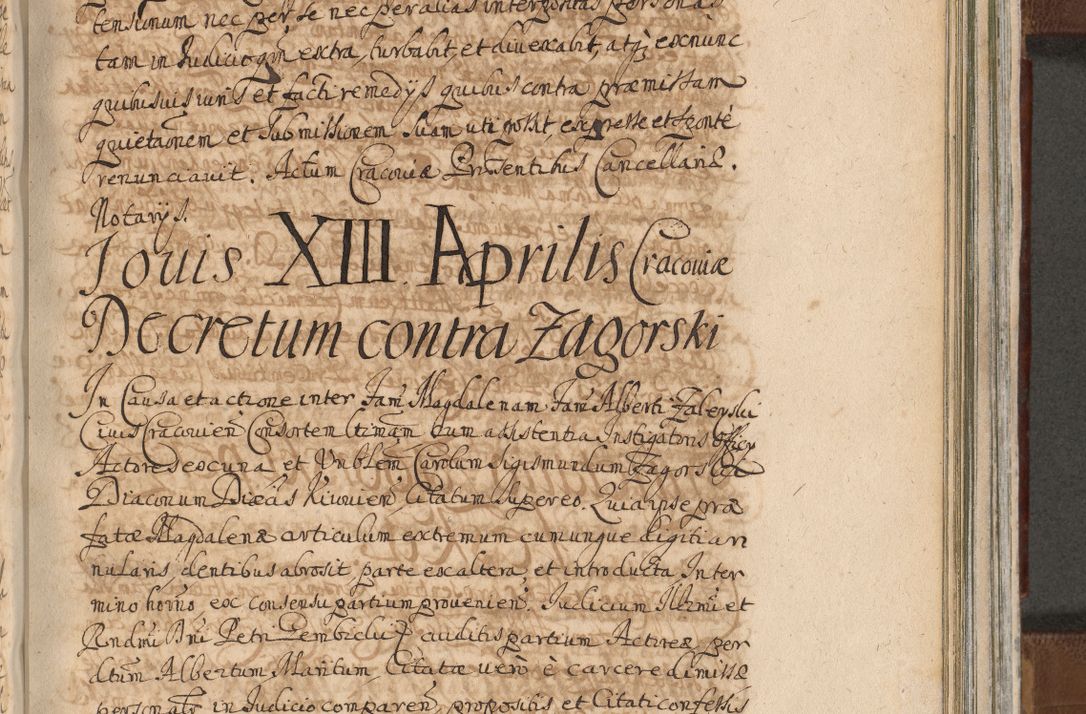 tensionum nec per se nec per alias interpositas personas
tam in Judicio quam extra, turbabit, et divexabit, atq; exnunc
quibusvis iuris et facti remedijs quibus contra præmissam
quietaõnem et Submissionem suam uti posset expresse et sponte
renunciavit. Actum Cracoviæ Præsentibus Cancellariæ.
Notarijs.
Jovis XIII. Aprilis Cracoviæ
Decretum contra Zagorski
In Causa et actione inter Fam̃ Magdalenam Fam̃ Alberti
Civis Cracovien̄ Consortem ltimam cum adsistentia Instigatoris Officy
Actores ex una et Vnblem̃ Carolum Sigismundum Zagorski
Diaconum Diæcæs Kiiovien̄ Citatum super eo. Quia ipse præ
fatæ Magdalenæ articulum extremum cumunque digiti an
nularis dentibus abrosit parte ex altera, et introducta Inter
mino horno, ex consensu partium provenien̄. Judicium Illrmi et
Rndmi Dni Petri Gembicki auditis partium Actoreæ per
dtum Albertum Maritum, Citatæ vero è carcere dimissæ
personalr in Judicio comparen̄, propositis et Citati confessis